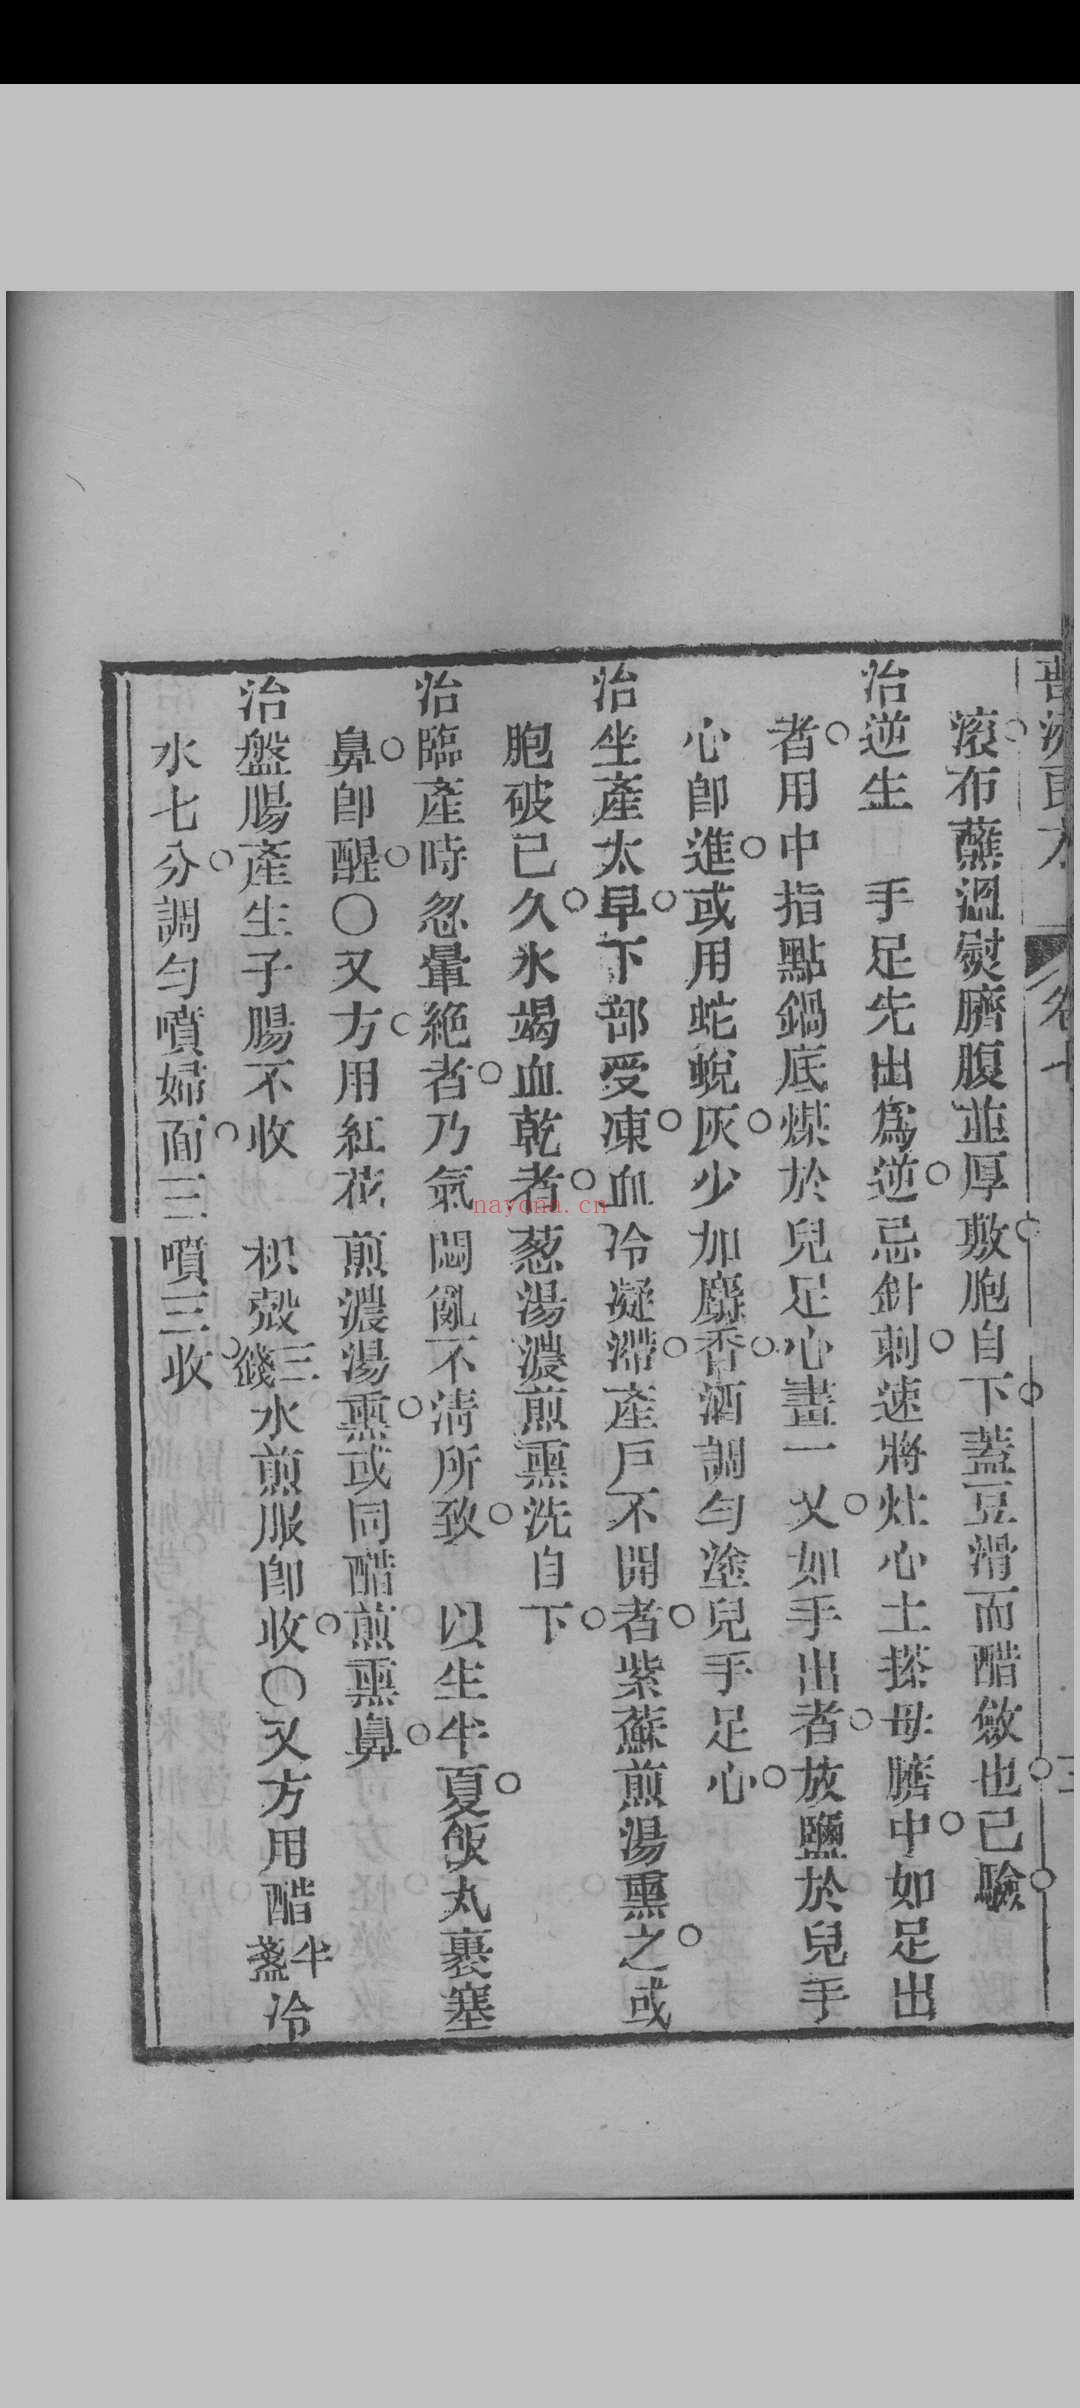 滾布蘸溫熨臍腹並厚敷胞自下蓋豆滑而醋斂也已驗
治逆生　手足先出為逆忌針刺速將灶心土搽母臍中如足出
者用中指點鍋底煤於兒足心畫一乂如手出者放鹽於兒手
心即進或用蛇蛻灰少加麝香酒調勻塗兒手足心
治坐產太早下部受凍血冷凝滯產戶不開者紫蘇煎湯熏之或
胞破已久水竭血乾者葱湯濃煎熏洗自下
治臨產時忽暈絕者乃氣悶亂不清所致　以生半夏飯丸裹塞
鼻即醒〇又方用紅花煎濃湯熏或同醋煎熏鼻
治盤腸產生子腸不收　枳殼三錢水煎服即收〇又方用醋半盞冷
水七分調勻噴婦面三噴三收
nayona.cn